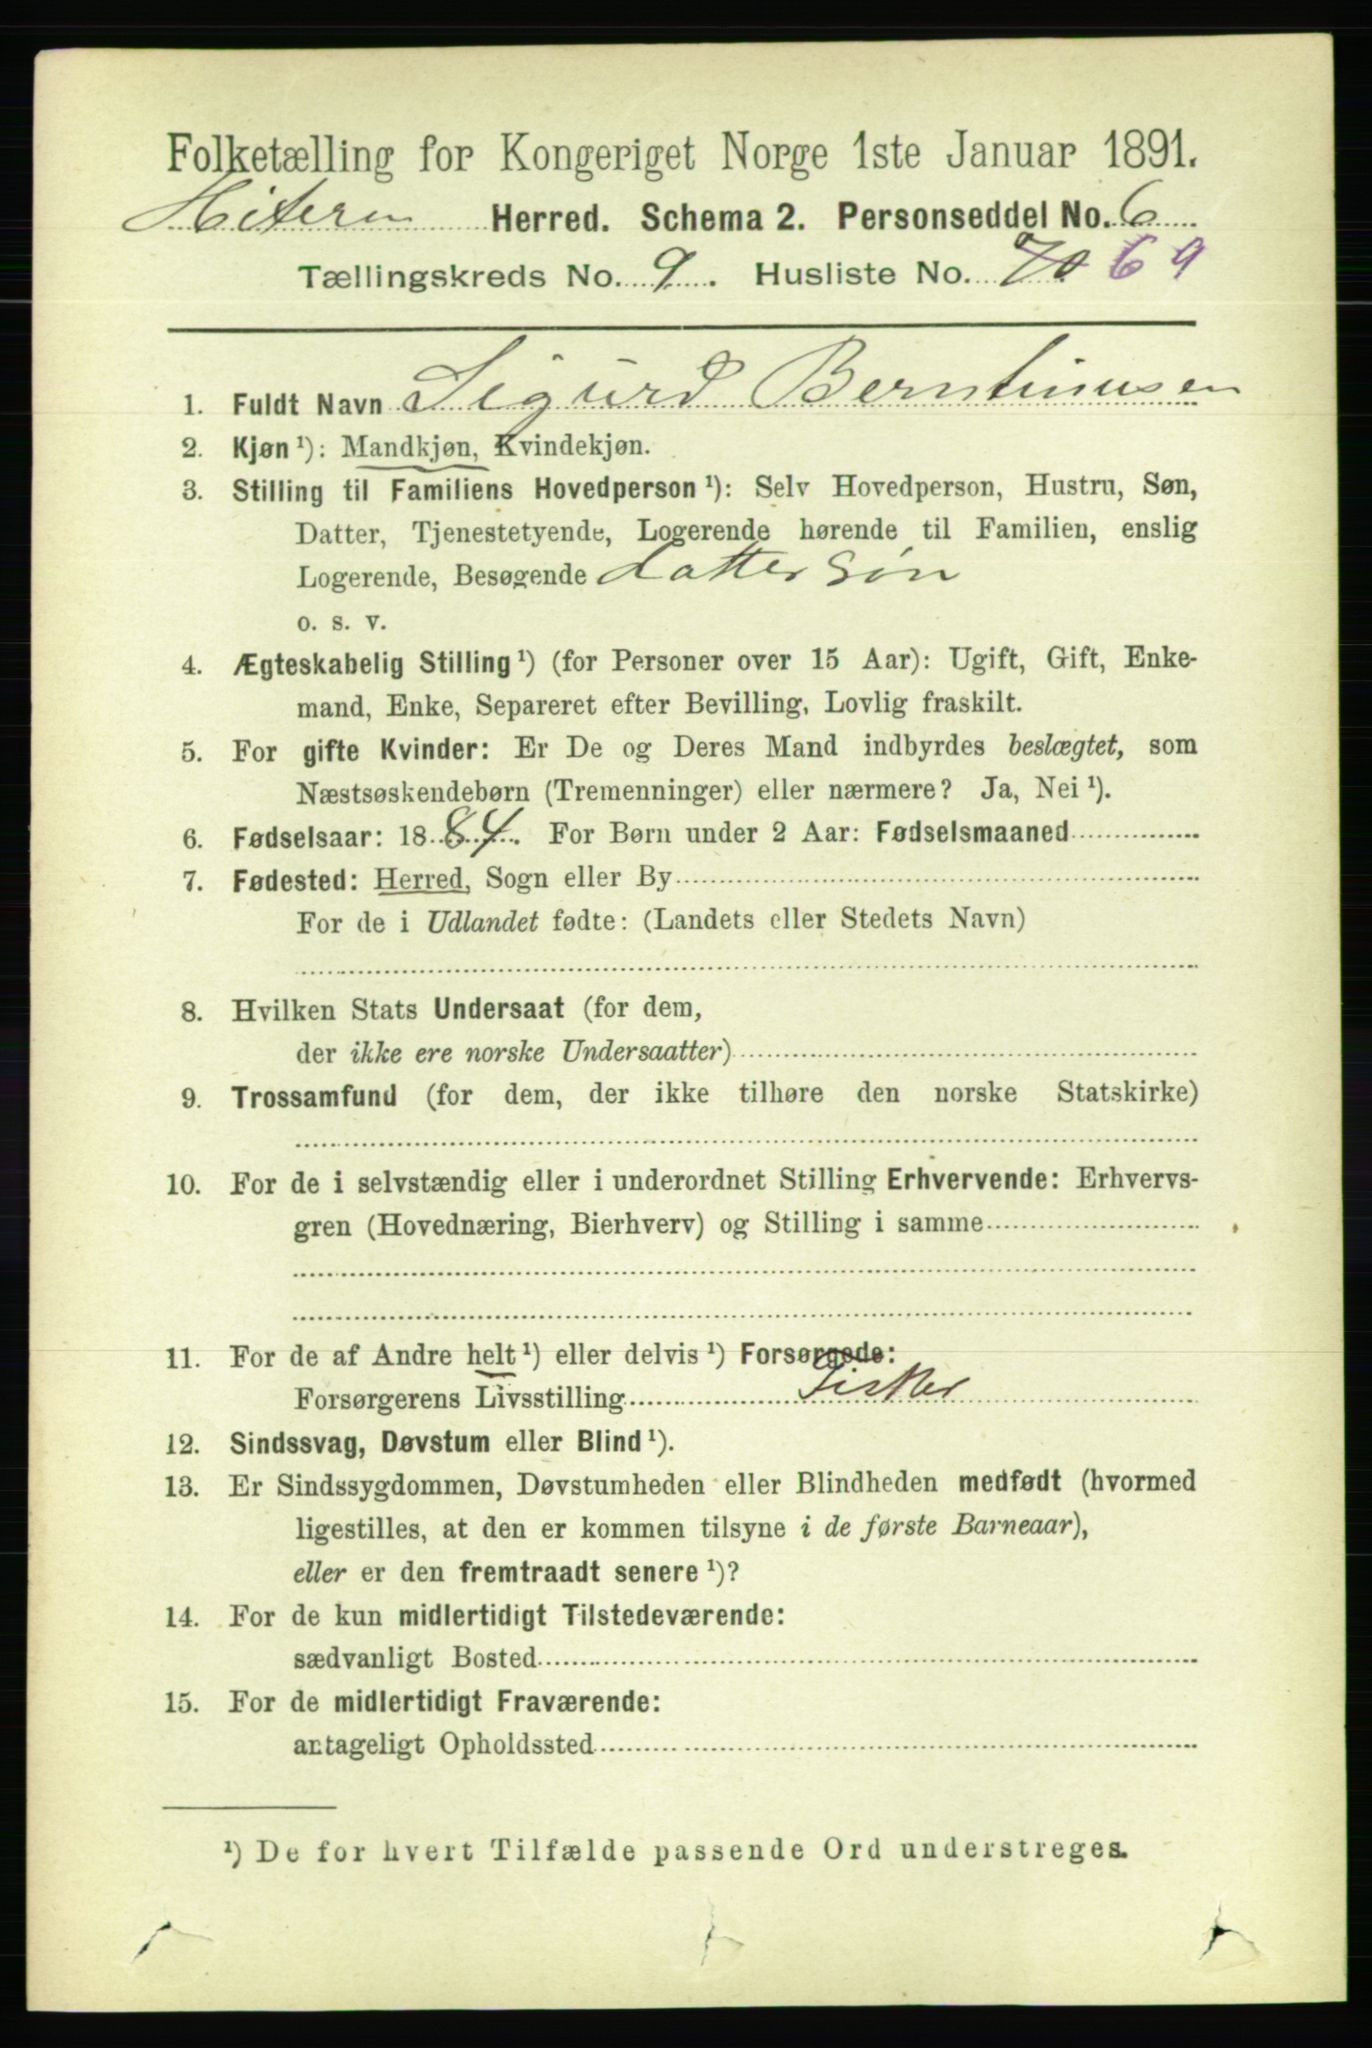 Folketælling for Kongeriget Norge 1ste Januar 1891.
Hiteren Herred. Schema 2. Personseddel No. 6
Tællingskreds No. 9. Husliste No. 70 69
1. Fuldt Navn Sigurd Berntinusen
2. Kjøn ¹): Mandkjøn, Kvindekjøn.
3. Stilling til Familiens Hovedperson ¹): Selv Hovedperson, Hustru, Søn,
Datter, Tjenestetyende, Logerende hørende til Familien, enslig
Logerende, Besøgende datter søn
o. s. v.
4. Ægteskabelig Stilling ¹) (for Personer over 15 Aar): Ugift, Gift, Enke-
mand, Enke, Separeret efter Bevilling, Lovlig fraskilt.
5. For gifte Kvinder: Er De og Deres Mand indbyrdes beslægtet, som
Næstsøskendebørn (Tremenninger) eller nærmere? Ja, Nei ¹).
6. Fødselsaar: 1884. For Børn under 2 Aar: Fødselsmaaned
7. Fødested: Herred, Sogn eller By
For de i Udlandet fødte: (Landets eller Stedets Navn)
8. Hvilken Stats Undersaat (for dem,
der ikke ere norske Undersaatter)
9. Trossamfund (for dem, der ikke tilhøre den norske Statskirke)
10. For de i selvstændig eller i underordnet Stilling Erhvervende: Erhvervs-
gren (Hovednæring, Bierhverv) og Stilling i samme
11. For de af Andre helt ¹) eller delvis ¹) Forsørgede:
Forsørgerens Livsstilling Fisker
12. Sindssvag, Døvstum eller Blind ¹).
13. Er Sindssygdommen, Døvstumheden eller Blindheden medfødt (hvormed
ligestilles, at den er kommen tilsyne i de første Barneaar),
eller er den fremtraadt senere ¹)?
14. For de kun midlertidigt Tilstedeværende:
sædvanligt Bosted
15. For de midlertidigt Fraværende:
antageligt Opholdssted
¹) De for hvert Tilfælde passende Ord understreges.